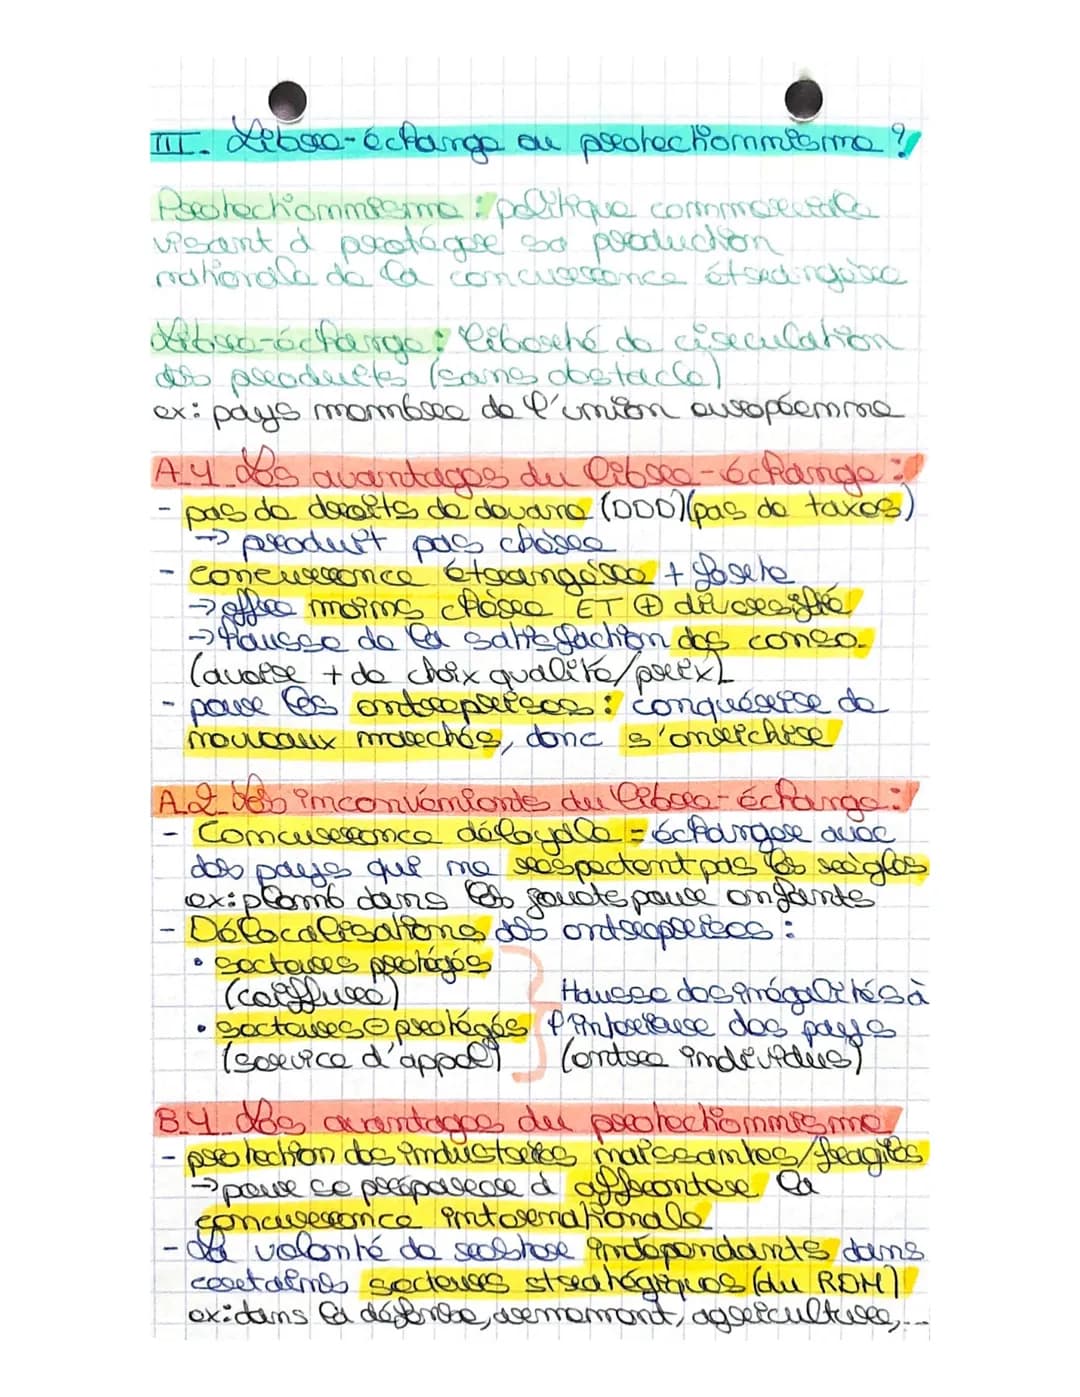 III. Libre-échange ou protectionnisme ?
Protectionnisme : politique commerciale
visant à protéger sa production
nationale de la concurrence étrangère
Libre-échange : liberté de circulation
des produits (sans obstacle)
ex: pays membre de l'union européenne
A.1. Les avantages du libre-échange :
- pas de droits de douane (DDD) (pas de taxes)
→ produit pas chère
- concurrence étrangère + forte
→ offre moins chère ET ⊕ diversifié
→ hausse de la satisfaction des conso.
(avoir + de choix qualité/prix)
- pour les entreprises : conquérir de
nouveaux marchés, donc s'enrichir
A.2. Les inconvénients du libre-échange :
- Concurrence déloyale = échanger avec
des pays qui ne respectent pas les règles
ex: plomb dans les jouets pour enfants
- Délocalisations des entreprises :
• secteurs protégés
(coiffure)
• secteurs ⊖ protégés
(service d'appel)
Hausse des inégalités à
l'intérieur des pays
(entre individus)
B.1. Les avantages du protectionnisme
- protection des industries naissantes/fragiles
→ pour se préparer à affronter la
concurrence internationale
- La volonté de rester indépendants dans
certains secteurs stratégiques (du RDM)
ex: dans la défense, armement, agriculture,...